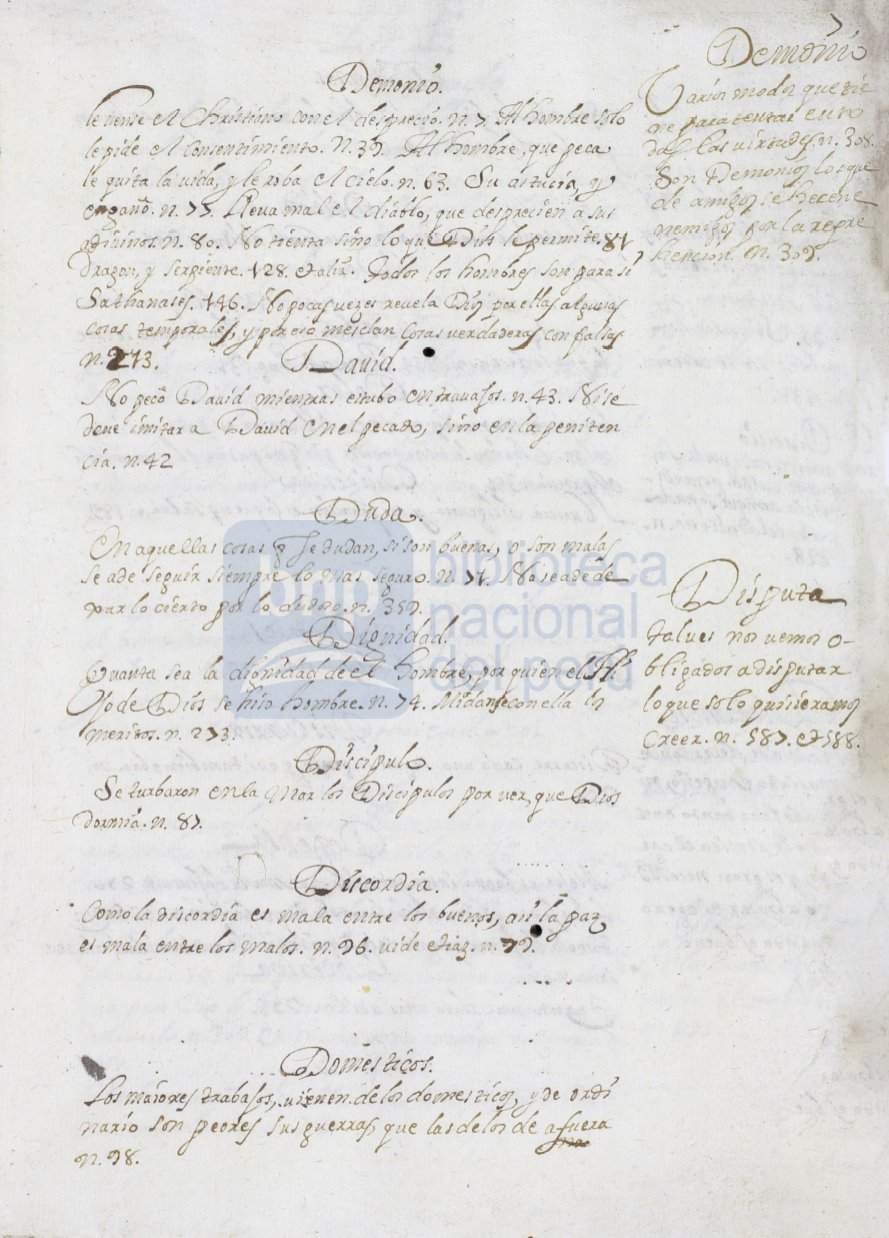 7
Demonio.
le vense el Christiano con el despreçio. n. 7. Al hombre solo
le pide el consentimiento. n. 39. Al hombre, que peca
le quita la vida, y le roba el cielo. n. 63. Su astucia, y
engaño. n. 77. lleva mal el diablo, que desprecien a sus
adiuinos. n. 80. No tienta sino lo que Dios le permite. 81
dragon, y serpiente. 128. et alia. Todos los hombres son para si
Sathanases. 146. No pocas vezes revela Dios por ellas algunas
cosas temporales, y por eso mesclan cosas verdaderas con falsas
n. 273.
David.
No pecó David mientras estubo en travajos. n. 43. Ni se
deve imitar a David en el pecado, sino en la peniten
cia. n. 42
Duda.
En aquellas cosas q se dudan, si son buenas, o son malas
se a de seguir siempre lo mas seguro. n. 71. No se a de de
xar lo cierto por lo dudoso. n. 359.
Dignidad.
Quanta sea la dignidad de el hombre, por quien el Hi
jo de Dios se hiso hombre. n. 74. Midanse con ella los
meritos. n. 273.
Discipulo.
Se turbaron en la mar los Discipulos por ver, que Dios
dormia. n. 87.
Discordia.
Como la discordia es mala entre los buenos, asi la paz
es mala entre los malos. n. 96. vide etiaz. n. 79.
Domesticos.
Los maiores trabajos, vienen de los domesticos, y de ordi
nario son peores sus guerras, que las de los de afuera
n. 98.
Demonio
Varios modos que tie
ne para tentar en to
das las virtudes. n. 308.
Son Demonios los que
de amigos se hacen e
nemigos por la repre
hencion. n. 309.
Disputa
tal ves nos vemos o-
bligados a disputar
lo que solo quisieramos
creer. n. 587. et 588.
bnp biblioteca
nacional
del perú